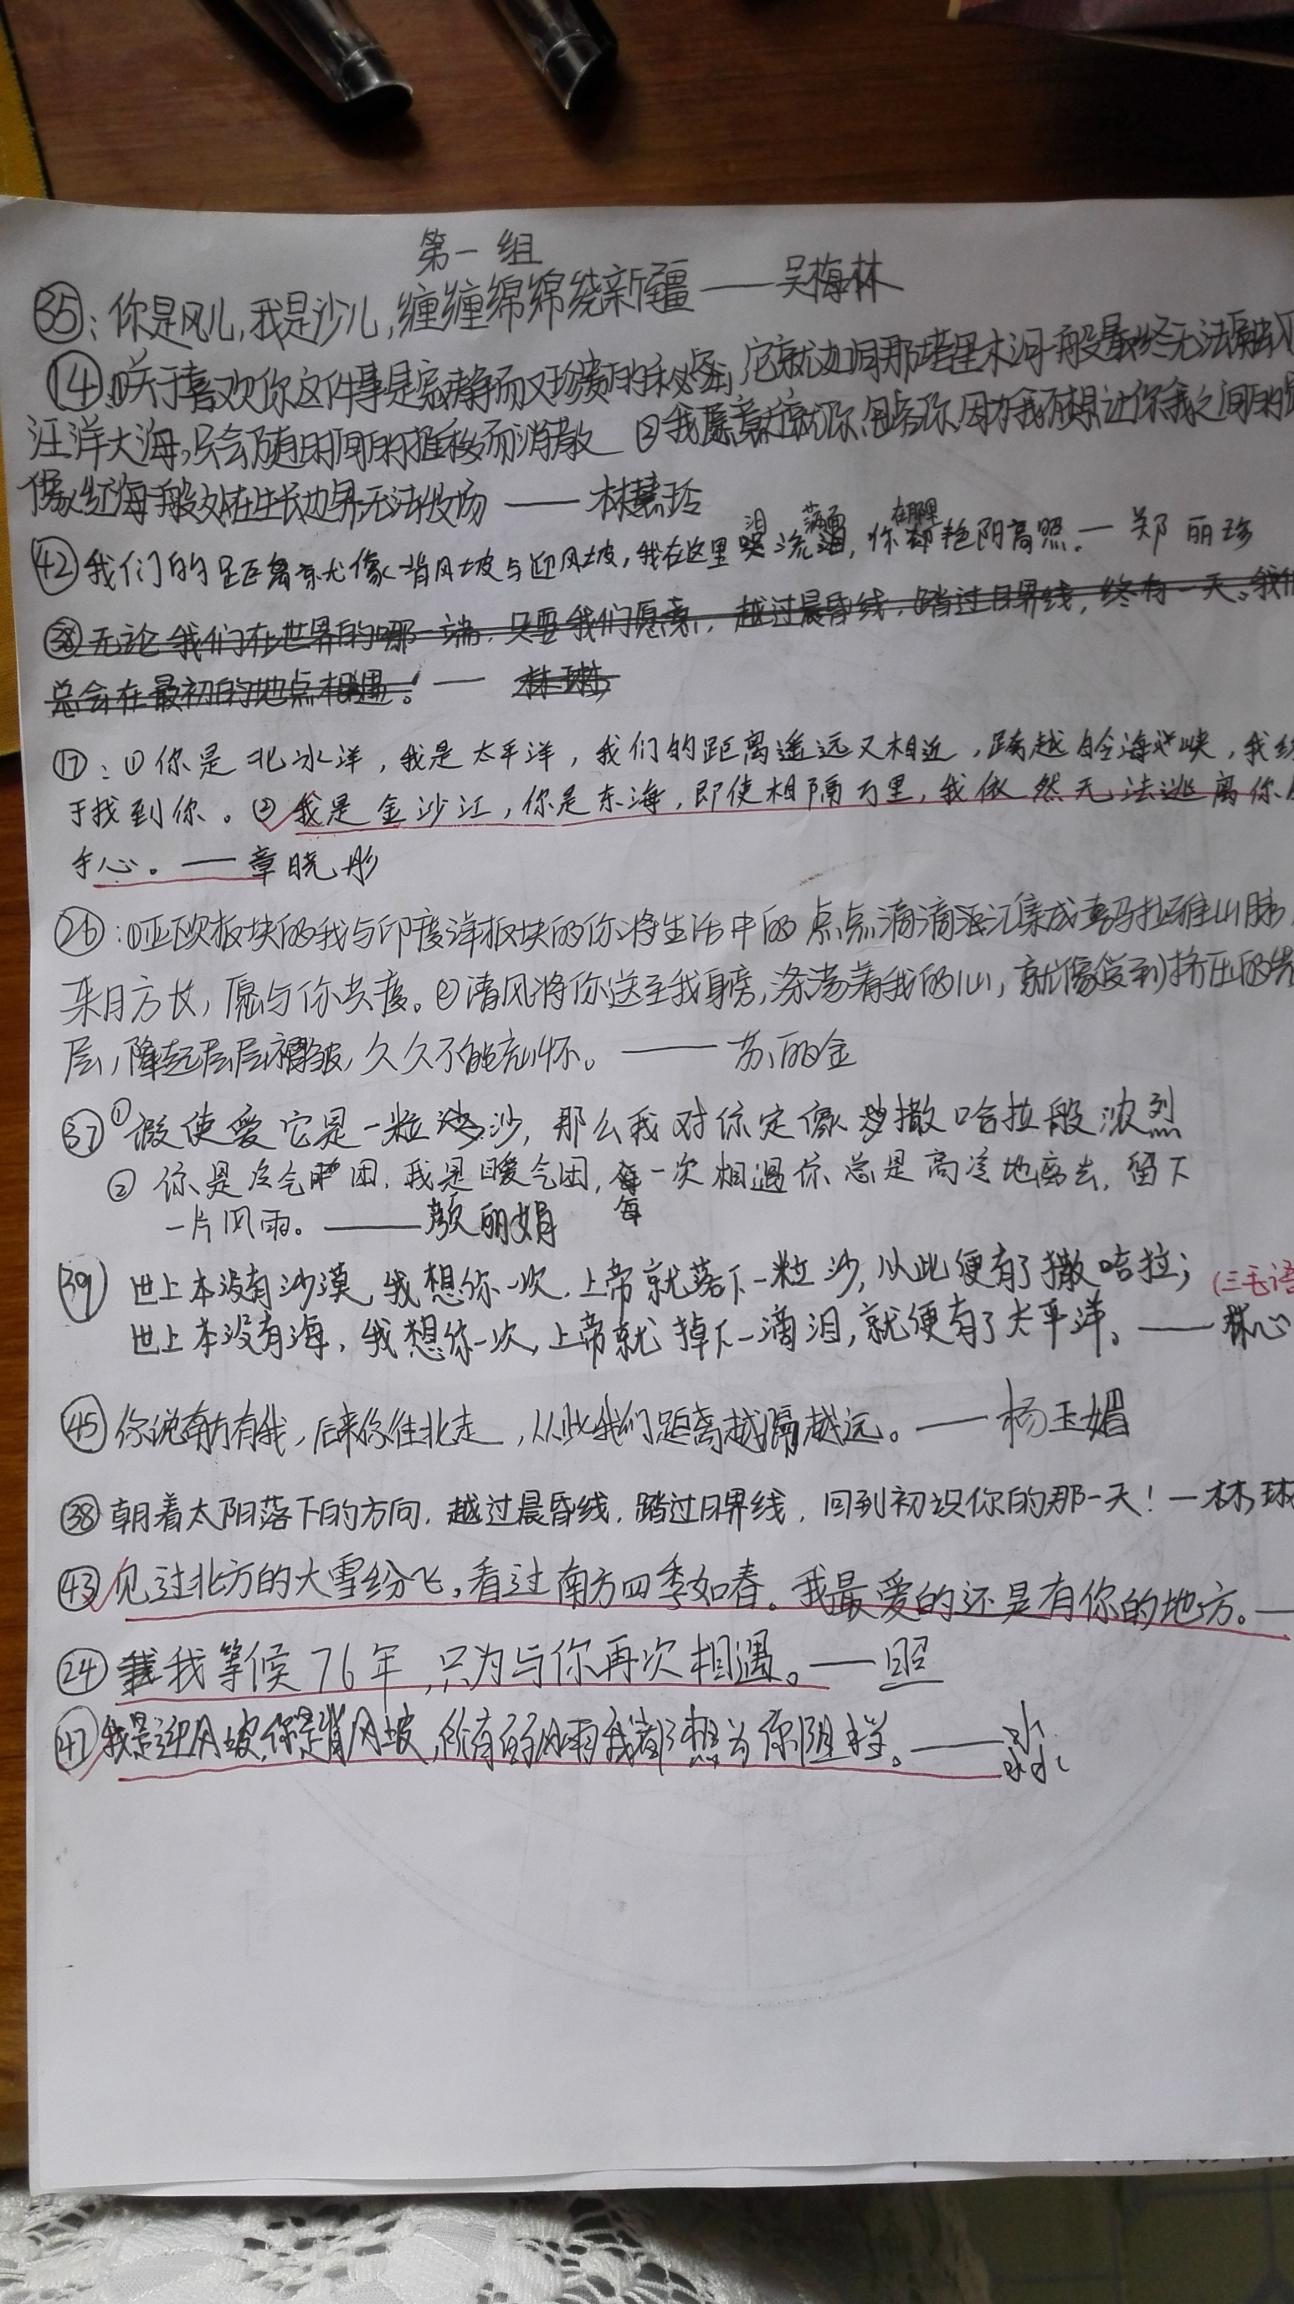 第一组
㉟:你是风儿,我是沙儿,缠缠绵绵绕新疆——吴梅林
⑭①关于喜欢你这件事是寂静而又珍贵的秘密,它就如同那塔里木河一般最终无法
汪洋大海,只会随时间的推移而消散 ②我愿意迁就你,包容你,因为我不想让你我之间的
像红海一般处在生长边界无法收场——林慧玲
㊷我们的距离就像背风坡与迎风坡,我在这里泪流满面,你在那里艳阳高照。—郑丽珍
㊳无论我们在世界的哪一端,只要我们愿意,越过晨昏线,踏过日界线,终有一天,我们
总会在最初的地点相遇!— 林琳
⑰:①你是北冰洋,我是太平洋,我们的距离遥远又相近,跨越白令海峡,我终
于找到你。②我是金沙江,你是东海,即使相隔万里,我依然无法逃离你
手心。——章晓彤
㉖:①亚欧板块的我与印度洋板块的你将生活中的点点滴滴汇集成喜马拉雅山脉,
来日方长,愿与你共度。②清风将你送至我身旁,涤荡着我的心,就像受到挤压的岩
层,隆起层层褶皱,久久不能忘怀。——苏丽金
㊲①假使爱它是一粒沙,那么我对你定像撒哈拉般浓烈
②你是冷气团,我是暖气团,每一次相遇你总是高冷地离去,留下
一片风雨。——颜丽娟
㊴世上本没有沙漠,我想你一次,上帝就落下一粒沙,从此便有了撒哈拉;(三毛语
世上本没有海,我想你一次,上帝就掉下一滴泪,就便有了太平洋。——林心
㊺你说南方有我,后来你往北走,从此我们距离越隔越远。——杨玉媚
㊳朝着太阳落下的方向,越过晨昏线,踏过日界线,回到初识你的那一天!—林琳
㊸见过北方的大雪纷飞,看过南方四季如春。我最爱的还是有你的地方。—
㉔我等候76年,只为与你再次相遇。——照
㊶我是迎风坡,你是背风坡,所有的风雨我都想为你阻挡。——淼